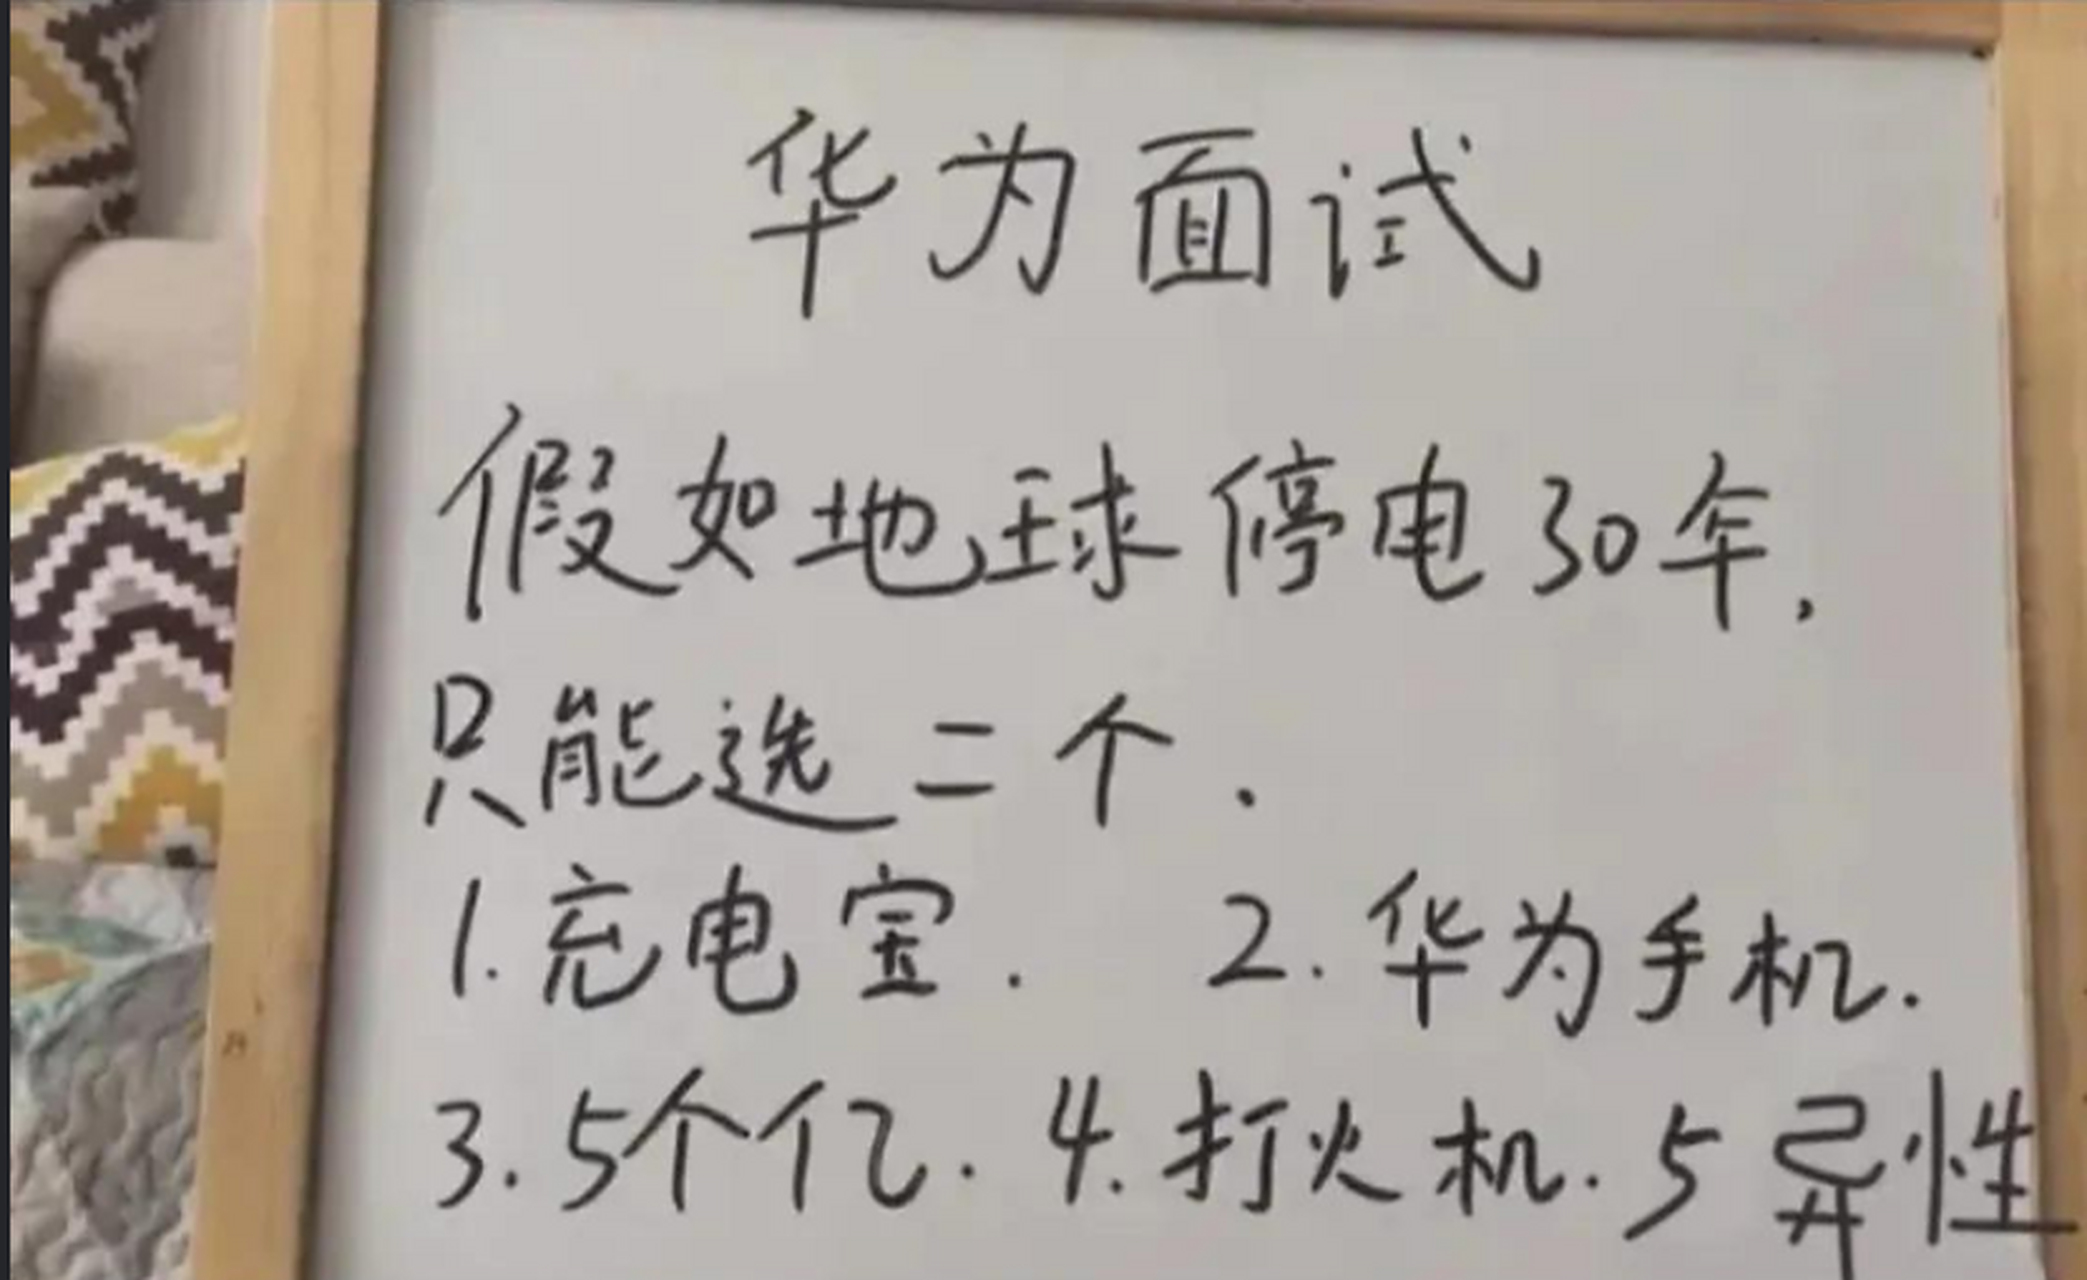 华为面试
假如地球停电30年,
只能选二个.
1.充电宝. 2.华为手机.
3.5个亿. 4.打火机. 5异性